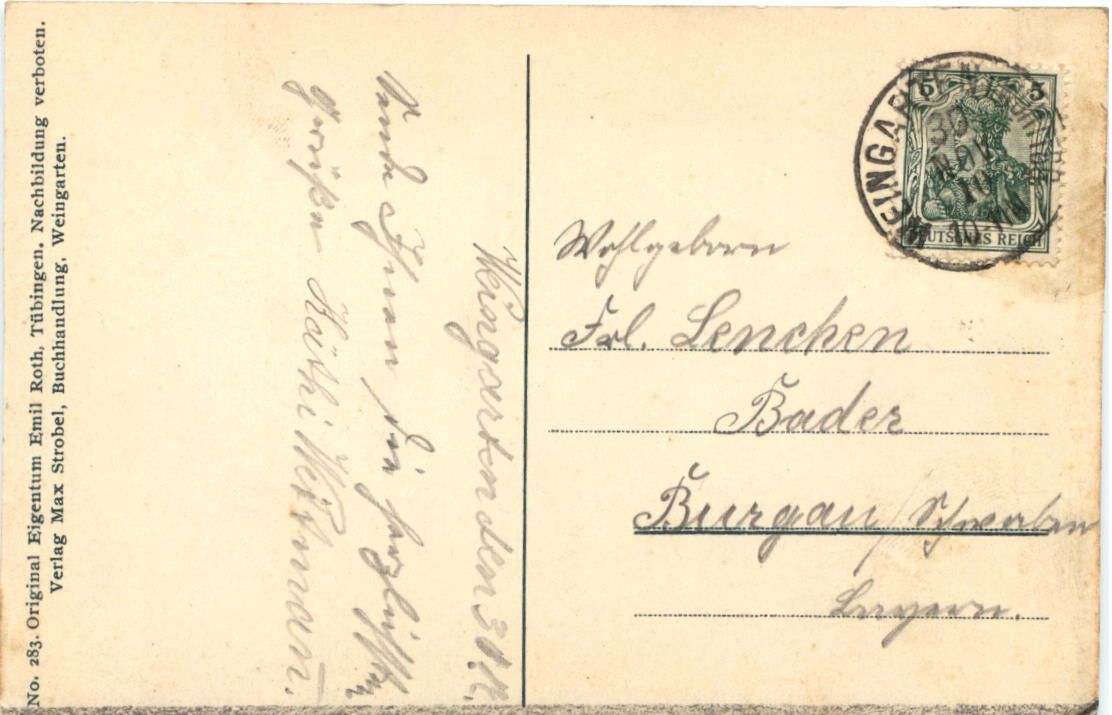 No. 283. Original Eigentum Emil Roth, Tübingen. Nachbildung verboten.
Verlag Max Strobel, Buchhandlung, Weingarten.
Weingarten den
Sende Ihnen die herzlichsten
Grüße Käthi
WEINGARTEN
30
MAI
10
5 5
DEUTSCHES REICH
Wohlgeborn
Frl. Lenchen
Bader
Burgau/Schwaben
Bayern.